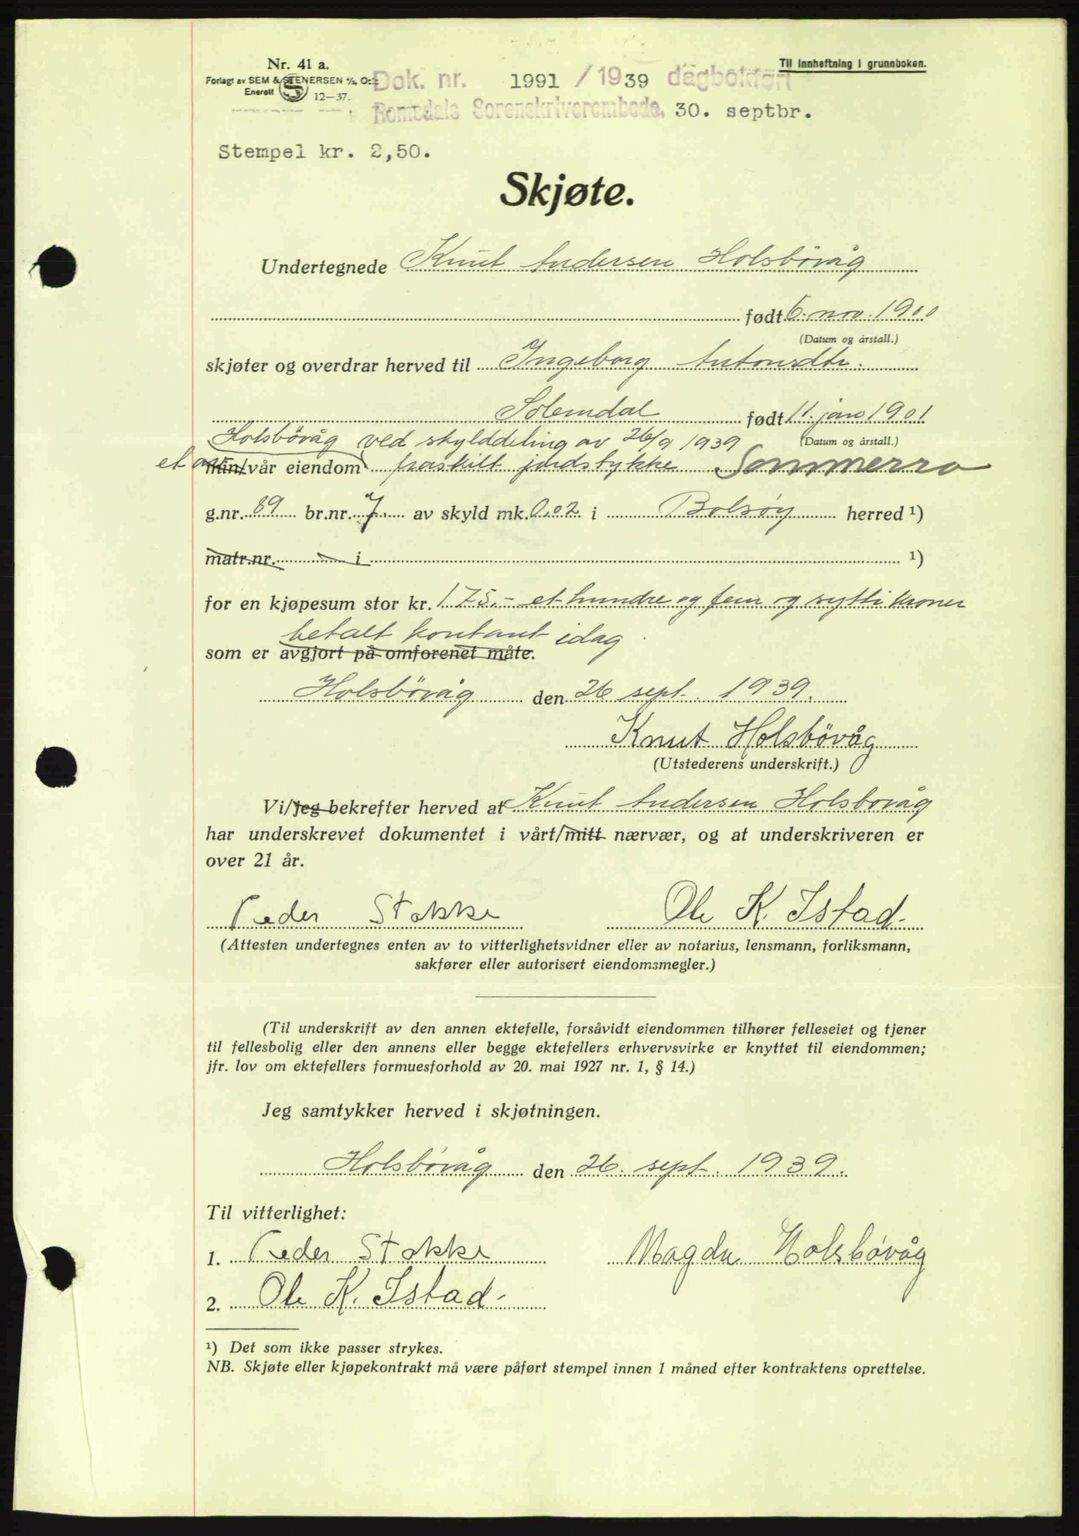 Nr. 41 a.
Til innheftning i grunnboken.
Forlagt av SEM & STENERSEN A/S, Oslo
Enerett 12-37.
Dok. nr. 1991 / 1939 dagbokført
Romsdals Sorenskriverembede, 30. septbr.
Stempel kr. 2,50.
Skjøte.
Undertegnede Knut Andersen Holsbövåg
født 6. nov. 1900
(Datum og årstall.)
skjøter og overdrar herved til Ingeborg Antonsdtr.
Solemdal født 11. jan 1901
(Datum og årstall.)
Holsbövåg ved skylddeling av 26/9 1939
et av min/vår eiendom fraskilt jordstykke Sommerro
g.nr. 89 br.nr. 7 av skyld mk. 0.02 i Bolsöy herred ¹)
matr.nr. i ¹)
for en kjøpesum stor kr. 175.- et hundre og fem og sytti kroner
betalt kontant idag
som er avgjort på omforenet måte.
Holsbövåg den 26 sept. 1939.
Knut Holsbövåg
(Utstederens underskrift.)
Vi/jeg bekrefter herved at Knut Andersen Holsbövåg
har underskrevet dokumentet i vårt/mitt nærvær, og at underskriveren er
over 21 år.
Peder Stokke Ole K. Istad.
(Attesten undertegnes enten av to vitterlighetsvidner eller av notarius, lensmann, forliksmann,
sakfører eller autorisert eiendomsmegler.)
(Til underskrift av den annen ektefelle, forsåvidt eiendommen tilhører felleseiet og tjener
til fellesbolig eller den annens eller begge ektefellers erhvervsvirke er knyttet til eiendommen;
jfr. lov om ektefellers formuesforhold av 20. mai 1927 nr. 1, § 14.)
Jeg samtykker herved i skjøtningen.
Holsbövåg den 26. sept. 1939.
Til vitterlighet:
1. Peder Stokke Magda Holsbövåg
2. Ole K. Istad.
¹) Det som ikke passer strykes.
NB. Skjøte eller kjøpekontrakt må være påført stempel innen 1 måned efter kontraktens oprettelse.